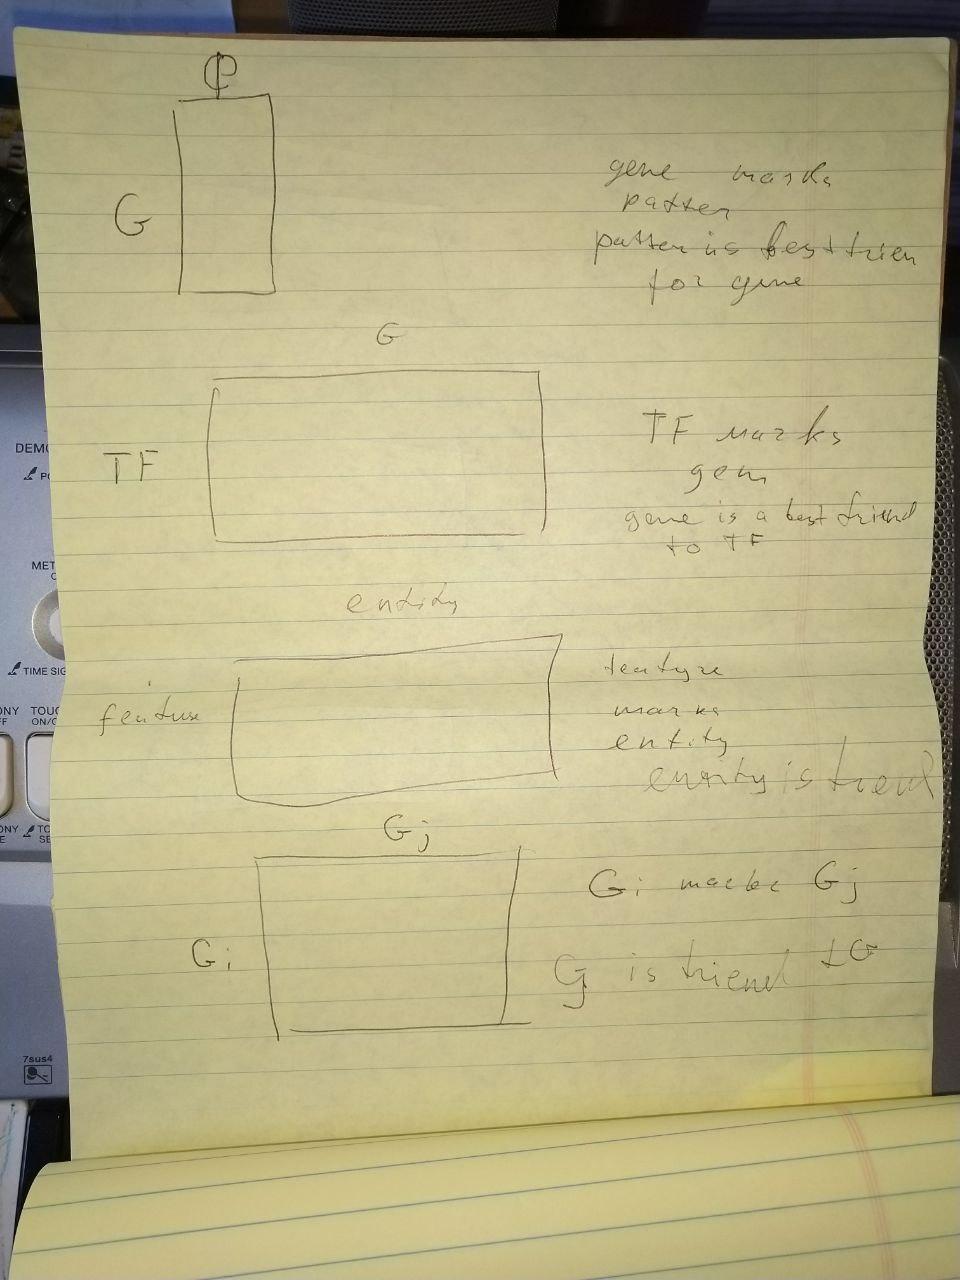 P
G
gene marks
patter
pattern is best frien
for gene
G
TF
TF marks
gem
gene is a best friend
to TF
entity
feature
featyre
marks
entity
entity is friend
Gj
Gi
Gi marks Gj
G is friend to G
DEMO
MET
TIME SIG
TOUC
ON/O
7sus4